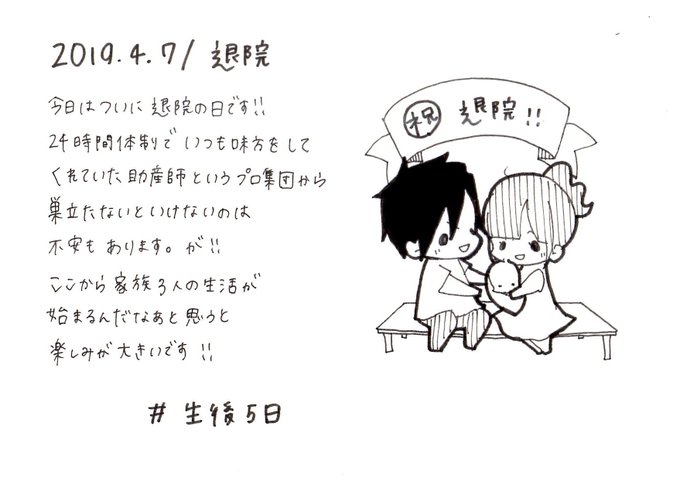 2019.4.7/ 退院
今日はついに退院の日です!!
24時間体制でいつも味方をして
くれていた助産師というプロ集団から
巣立たないといけないのは
不安もあります。が!!
ここから家族3人の生活が
始まるんだなぁと思うと
楽しみが大きいです!!
#生後5日
祝 退院!!